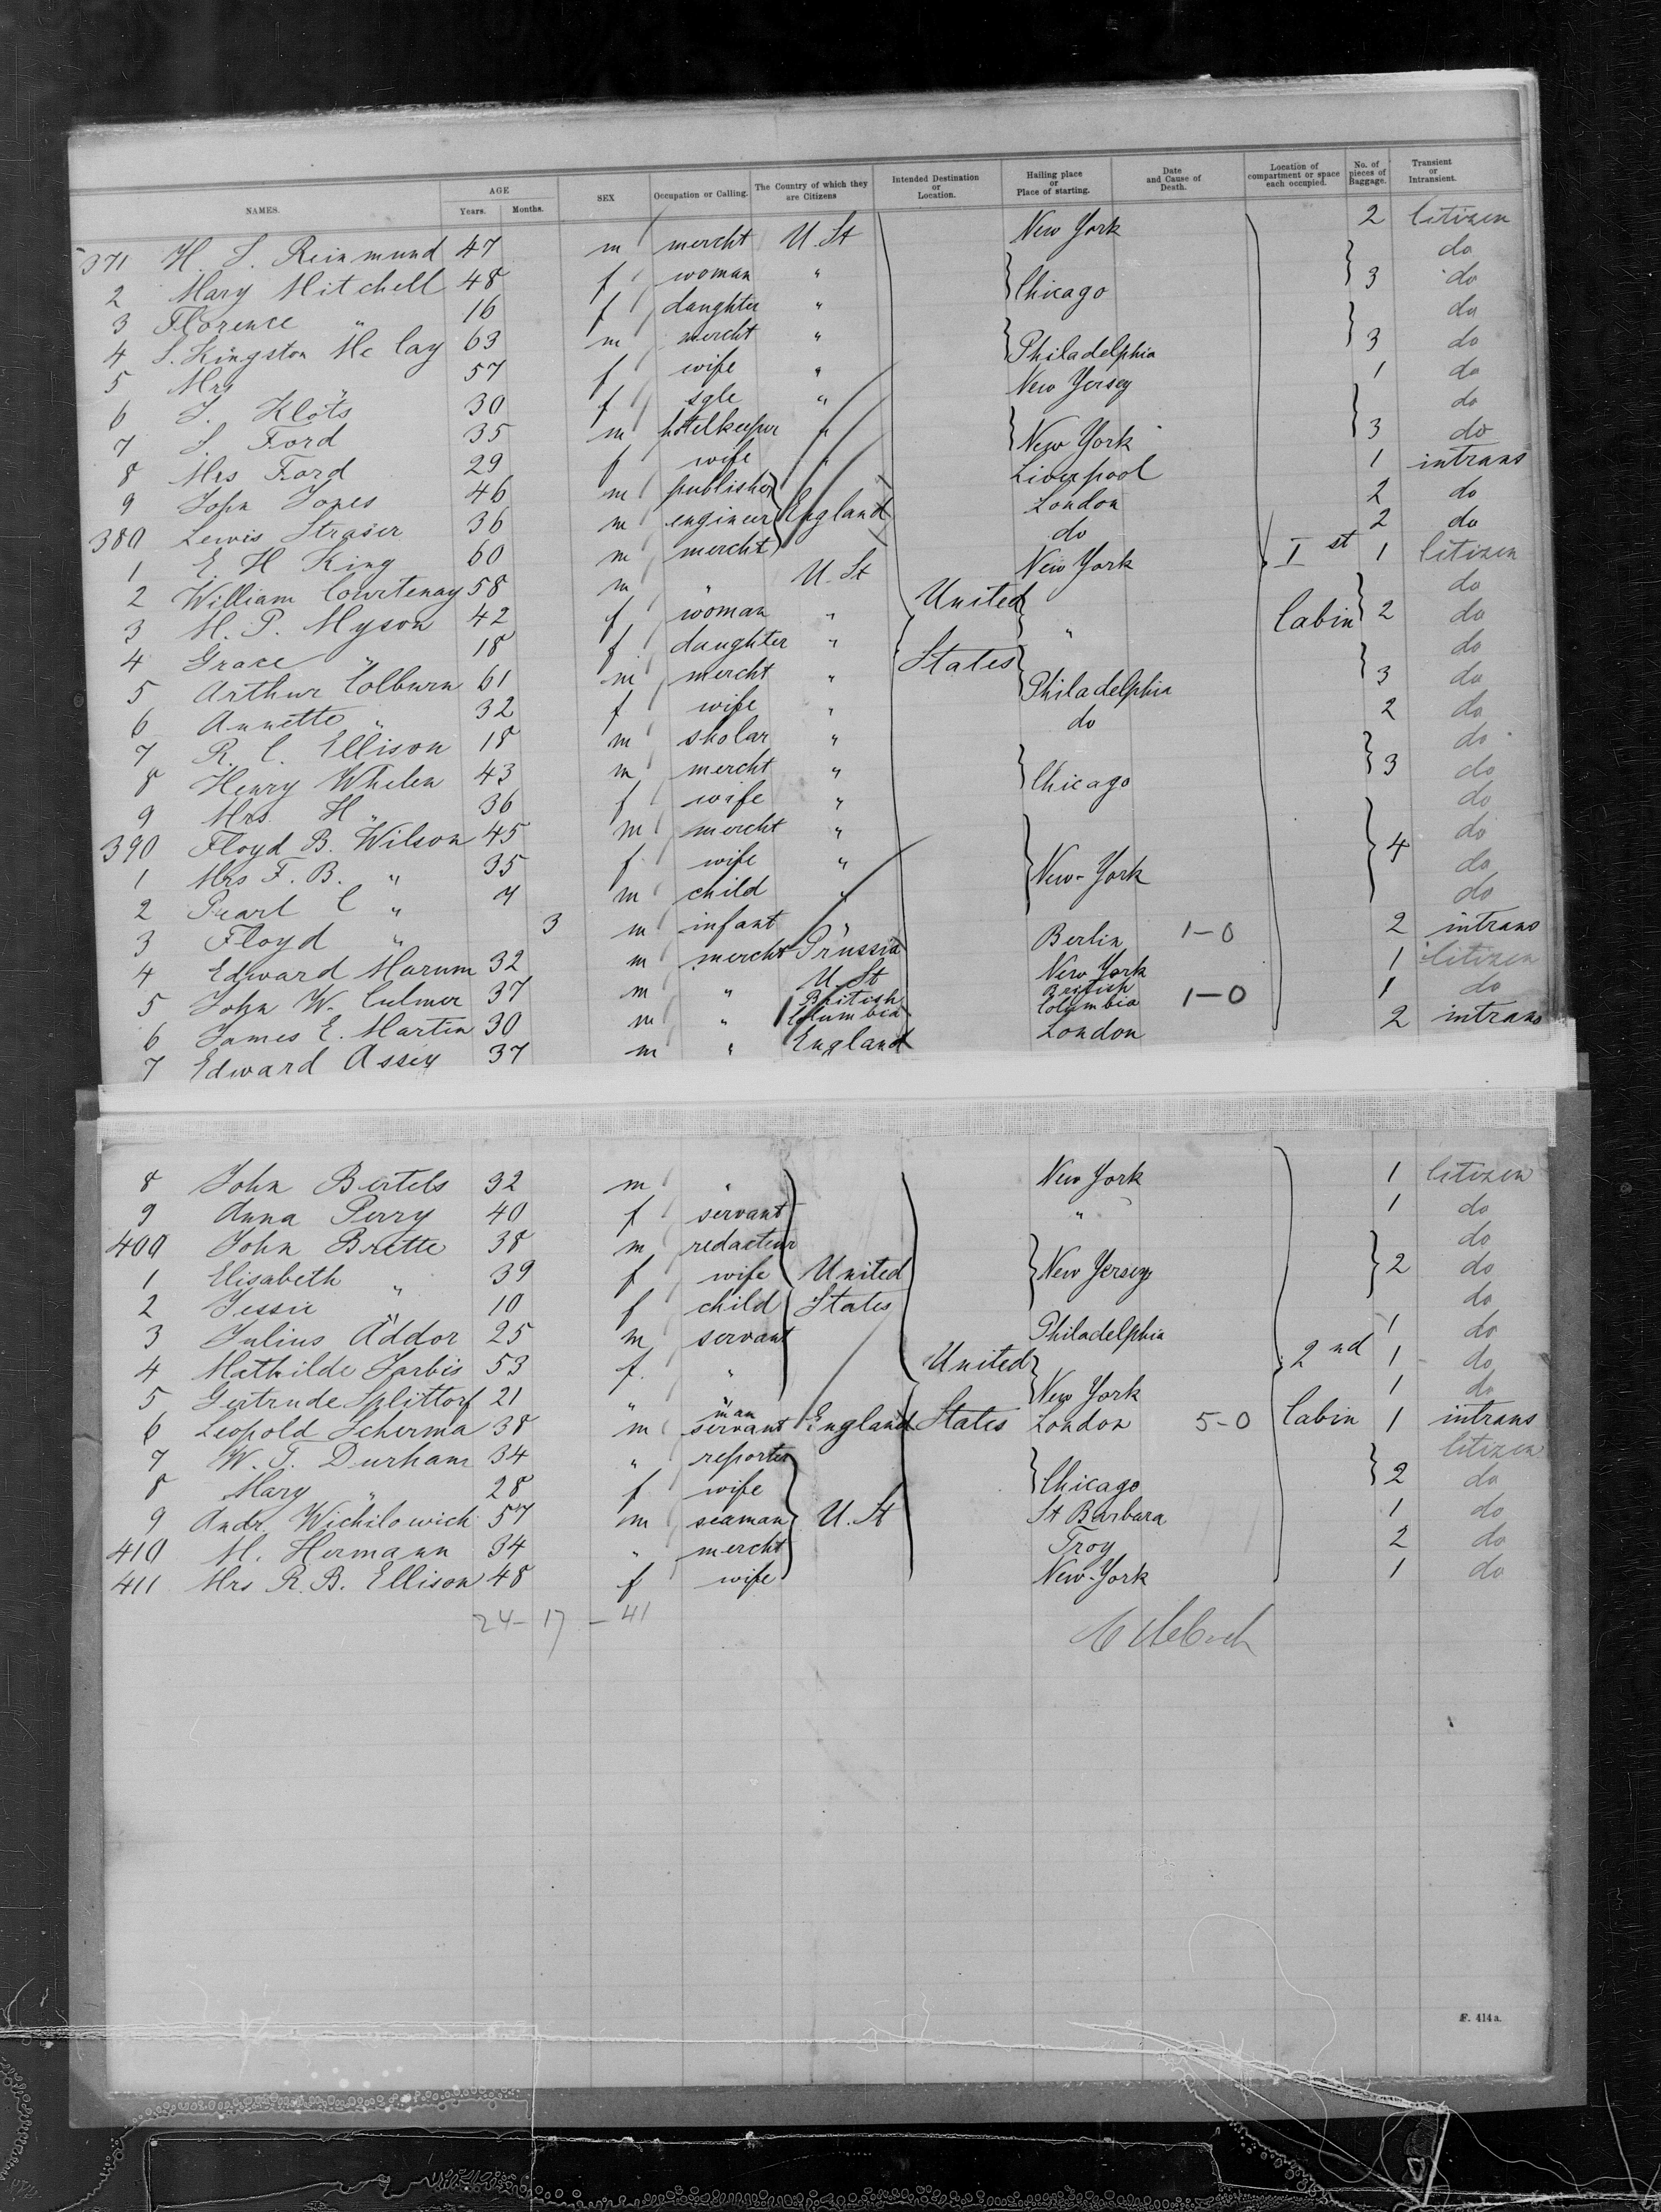 NAMES. AGE Years. Months. SEX Occupation or Calling. The Country of which they are Citizens Intended Destination or Location. Hailing place or Place of starting. Date and Cause of Death. Location of compartment or space each occupied. No. of pieces of Baggage. Transient or Intransient.
371 H. S. Reinmund 47 m mercht U. St New York 2 Citizen
2 Mary Mitchell 48 f woman " do
3 Florence " 16 f daughter " Chicago 3 do
4 S. Kingston Mc Cay 63 m mercht " do
5 Mrs " 57 f wife " Philadelphia 3 do
6 J. Klots 30 f sgle " New Yersey 1 do
7 S. Ford 35 m hotelkeeper " do
8 Mrs Ford 29 f wife " New York 3 do
9 John Jones 46 m publisher Liverpool 1 intrans
380 Lewis Straser 36 m engineer England London 2 do
1 E. H King 60 m mercht do 2 do
2 William Courtenay 58 m " U. St New York I st 1 Citizen
3 M. P. Myson 42 f woman " United do
4 Grace " 18 f daughter " " Cabin 2 do
5 Arthur Colburn 61 m mercht " States do
6 Annette " 32 f wife " Philadelphia 3 do
7 R. C. Ellison 18 m skolar " do 2 do
8 Henry Whelen 43 m mercht " do
9 Mrs H " 36 f wife " Chicago 3 do
390 Floyd B. Wilson 45 m mercht " do
1 Mrs F. B. " 35 f wife " do
2 Pearl C " 7 m child " New-York 4 do
3 Floyd " 3 m infant " do
4 Edward Marum 32 m mercht Prussia Berlin 1-0 2 intrans
5 John W. Culmer 37 m " U. St New York 1 Citizen
6 James E. Martin 30 m " British Columbia British Columbia 1-0 1 do
7 Edward Assey 37 m " England London 2 intrans
8 John Bertels 32 m " New York 1 Citizen
9 Anna Perry 40 f servant " 1 do
400 John Brette 38 m redacteur do
1 Elisabeth " 39 f wife United New Yersey 2 do
2 Jessie " 10 f child States do
3 Julius Addor 25 m servant Philadelphia 1 do
4 Mathilde Jarbis 53 f. " United 2 nd 1 do
5 Gertrude Splittorf 21 " " New York 1 do
6 Leopold Scherma 38 m man servant England States London 5-0 Cabin 1 intrans
7 W. T. Durham 34 " reporter Citizen
8 Mary " 28 f wife Chicago 2 do
9 Andr. Wichilowich 57 m seaman U. St St Barbara 1 do
410 M. Hermann 34 " mercht Troy 2 do
411 Mrs R. B. Ellison 48 f wife New-York 1 do
24- 17 - 41
F. 414a.